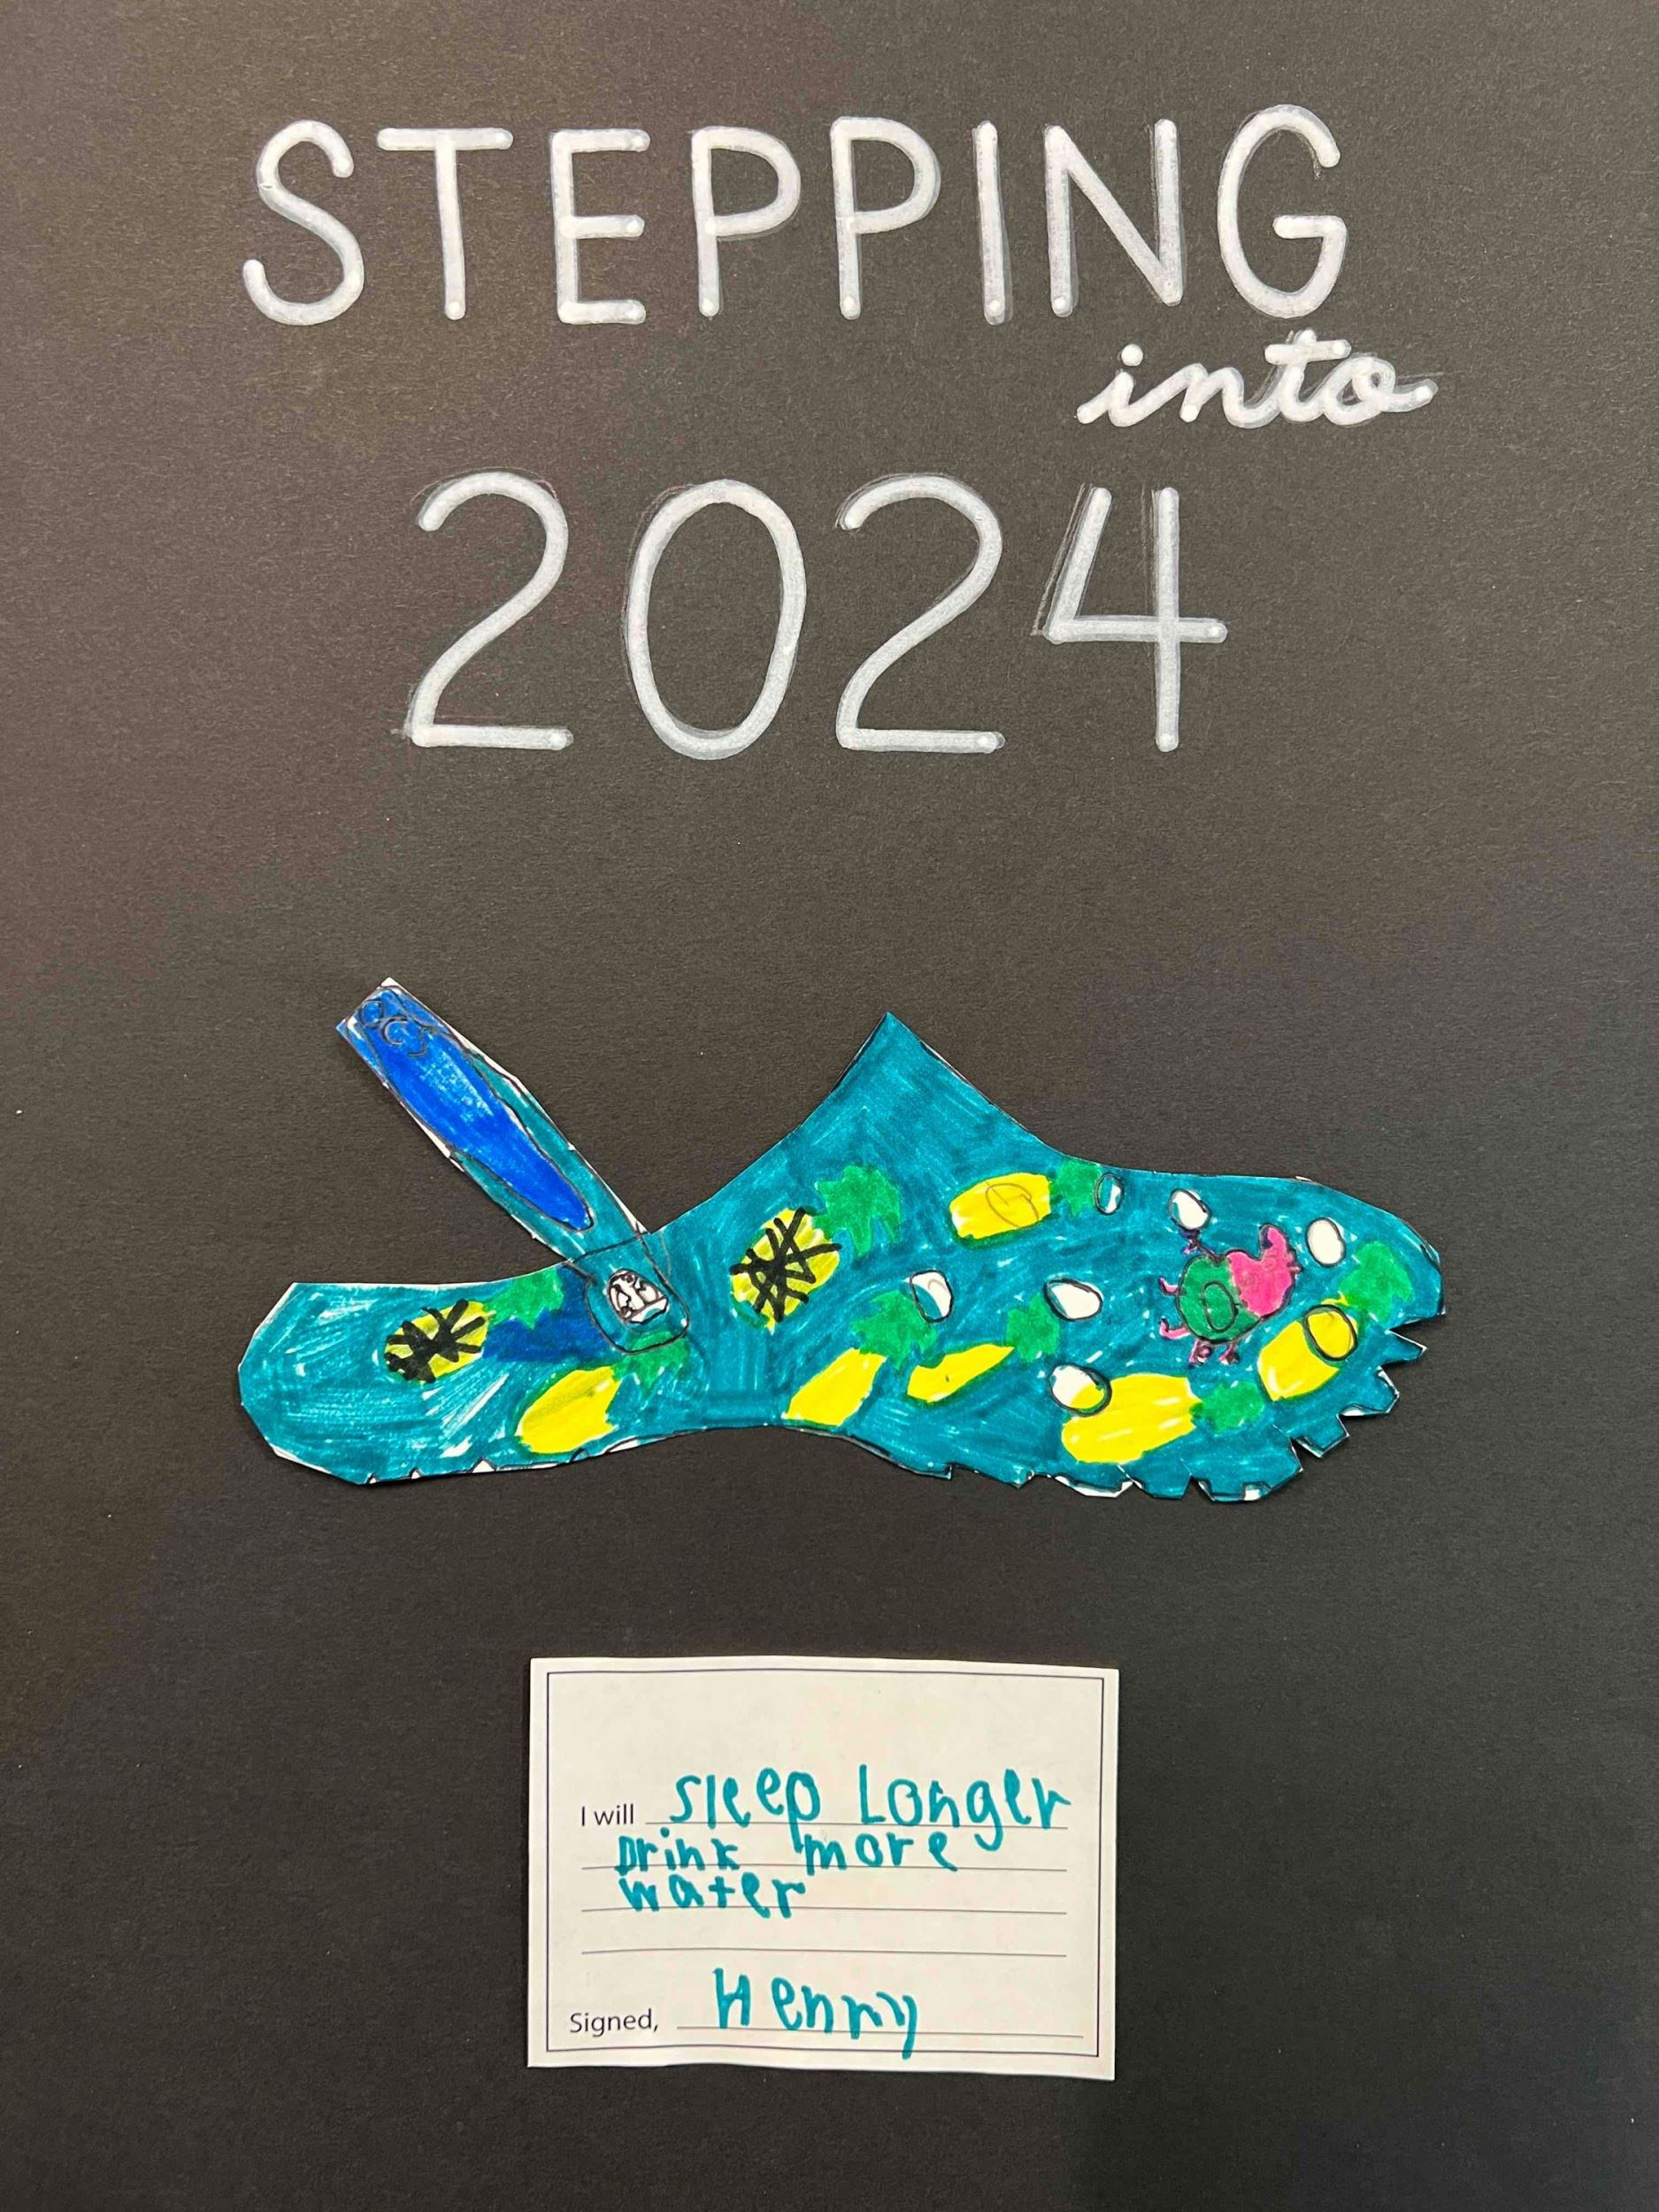 STEPPING
into
2024
I will sleep Longer
Drink more
water
Signed, Henry